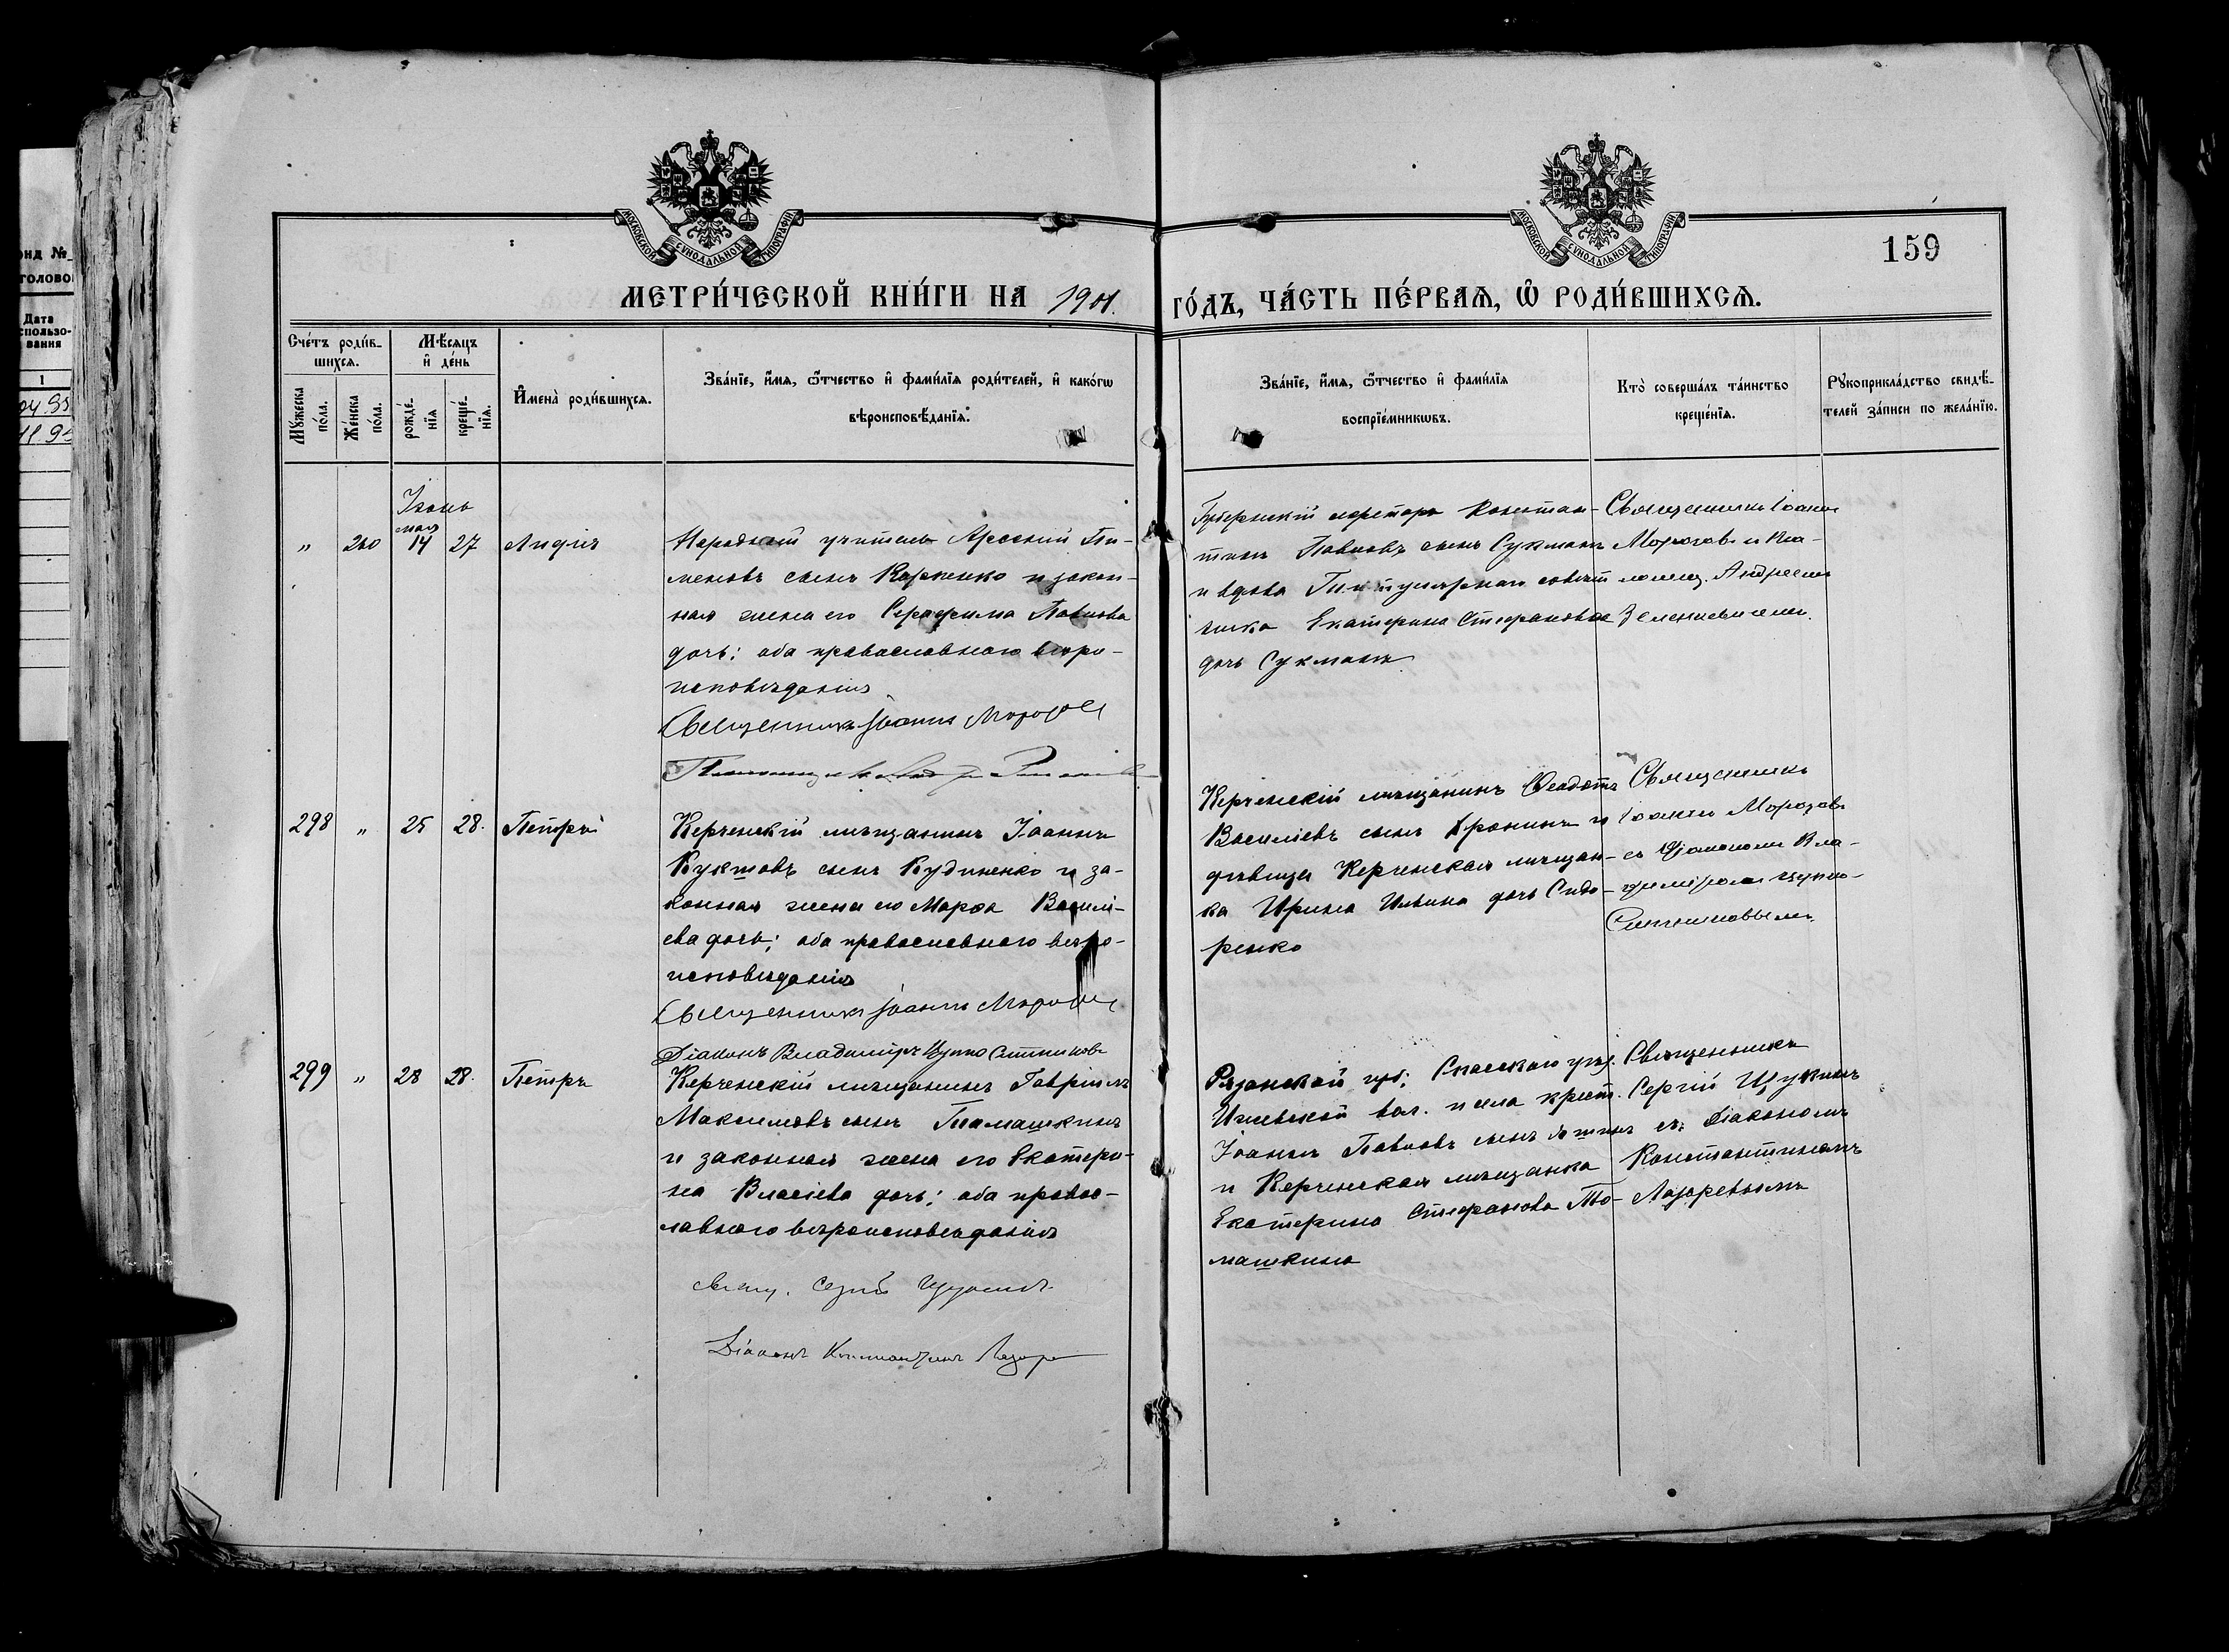 МОСКОВСКОЙ СУНОДАЛЬНОЙ ТИПОГРАФІИ
МОСКОВСКОЙ СУНОДАЛЬНОЙ ТИПОГРАФІИ
159
МЕТРИ́ЧЕСКОЙ КНИ́ГИ НА 1901. ГО́ДЪ, ЧА́СТЬ ПЕ́РВАѦ, Ѽ РОДИ́ВШИХСѦ.
Сче́тъ роди́в-
шихсѧ.
Мѣ́сѧцъ
и҆ де́нь
Мꙋ́жеска
по́ла.
Же́нска
по́ла.
рожде́-
нїѧ
креще́-
нїѧ.
И҆мена̀ роди́вшихсѧ.
Зва́нїе, и҆́мѧ, ѻ҆́тчество и҆ фами́лїѧ роди́телей, и҆ како́гѡ
вѣроисповѣ́данїѧ.
Зва́нїе, и҆́мѧ, ѻ҆́тчество и҆ фами́лїѧ
воспрїе́мникѡвъ.
Кто̀ соверша́лъ та́инство
креще́нїѧ.
Рꙋкоприкла́дство свидѣ́-
телей за́писи по жела́нїю.
Іюнь
мая
" 260 14 27 Лидія
Народный учитель Арсений Пи-
меновъ сынъ Карпенко и закон-
ная жена его Серафима Павлова
дочь; оба православнаго веро-
исповѣданія
Священникъ Іоаннъ Морозовъ
Губернскій Констан-
тинъ Павловъ сынъ Сукманъ
и вдова Титулярнаго совѣт
ника Екатерина Стефановая
дочь Сукманъ
Священникъ Іоаннъ
Морозовъ и
Андреемъ
298 " 25 28. Петръ
Керченскій мѣщанинъ Іоаннъ
сынъ Кудиненко и за-
конная жена его Марѳа Василі-
ева дочь; оба православнаго вѣро-
исповѣданія
Священникъ Іоаннъ Морозовъ
Діаконъ Владиміръ Цупко Ситниковъ
Керченскій мѣщанинъ Ѳеодотъ
Василіевъ сынъ и
дѣвица Керченская мѣщан-
ка Ирина Ильина дочь Сидо-
ренко
Священникъ
Іоаннъ Морозовъ
съ Діакономъ Вла-
диміромъ Цупко-
Ситниковымъ.
299 " 28 28. Петръ
Керченскій мѣщанинъ Гавріилъ
Максимовъ сынъ Томашкинъ
и законная жена его Екатери-
на Власіева дочь; оба правос-
лавнаго вѣроисповѣданія
свящ. Сергій Щукинъ
Діаконъ Константинъ Лазаревъ
Рязанской губ; Спасскаго уѣз.
Ижевской вол. и села крест.
Іоаннъ Павловъ сынъ
и Керченская мѣщанка
Екатерина Стефанова То-
машкина
Священникъ
Сергій Щукинъ
съ Діакономъ
Константиномъ
Лазаревымъ